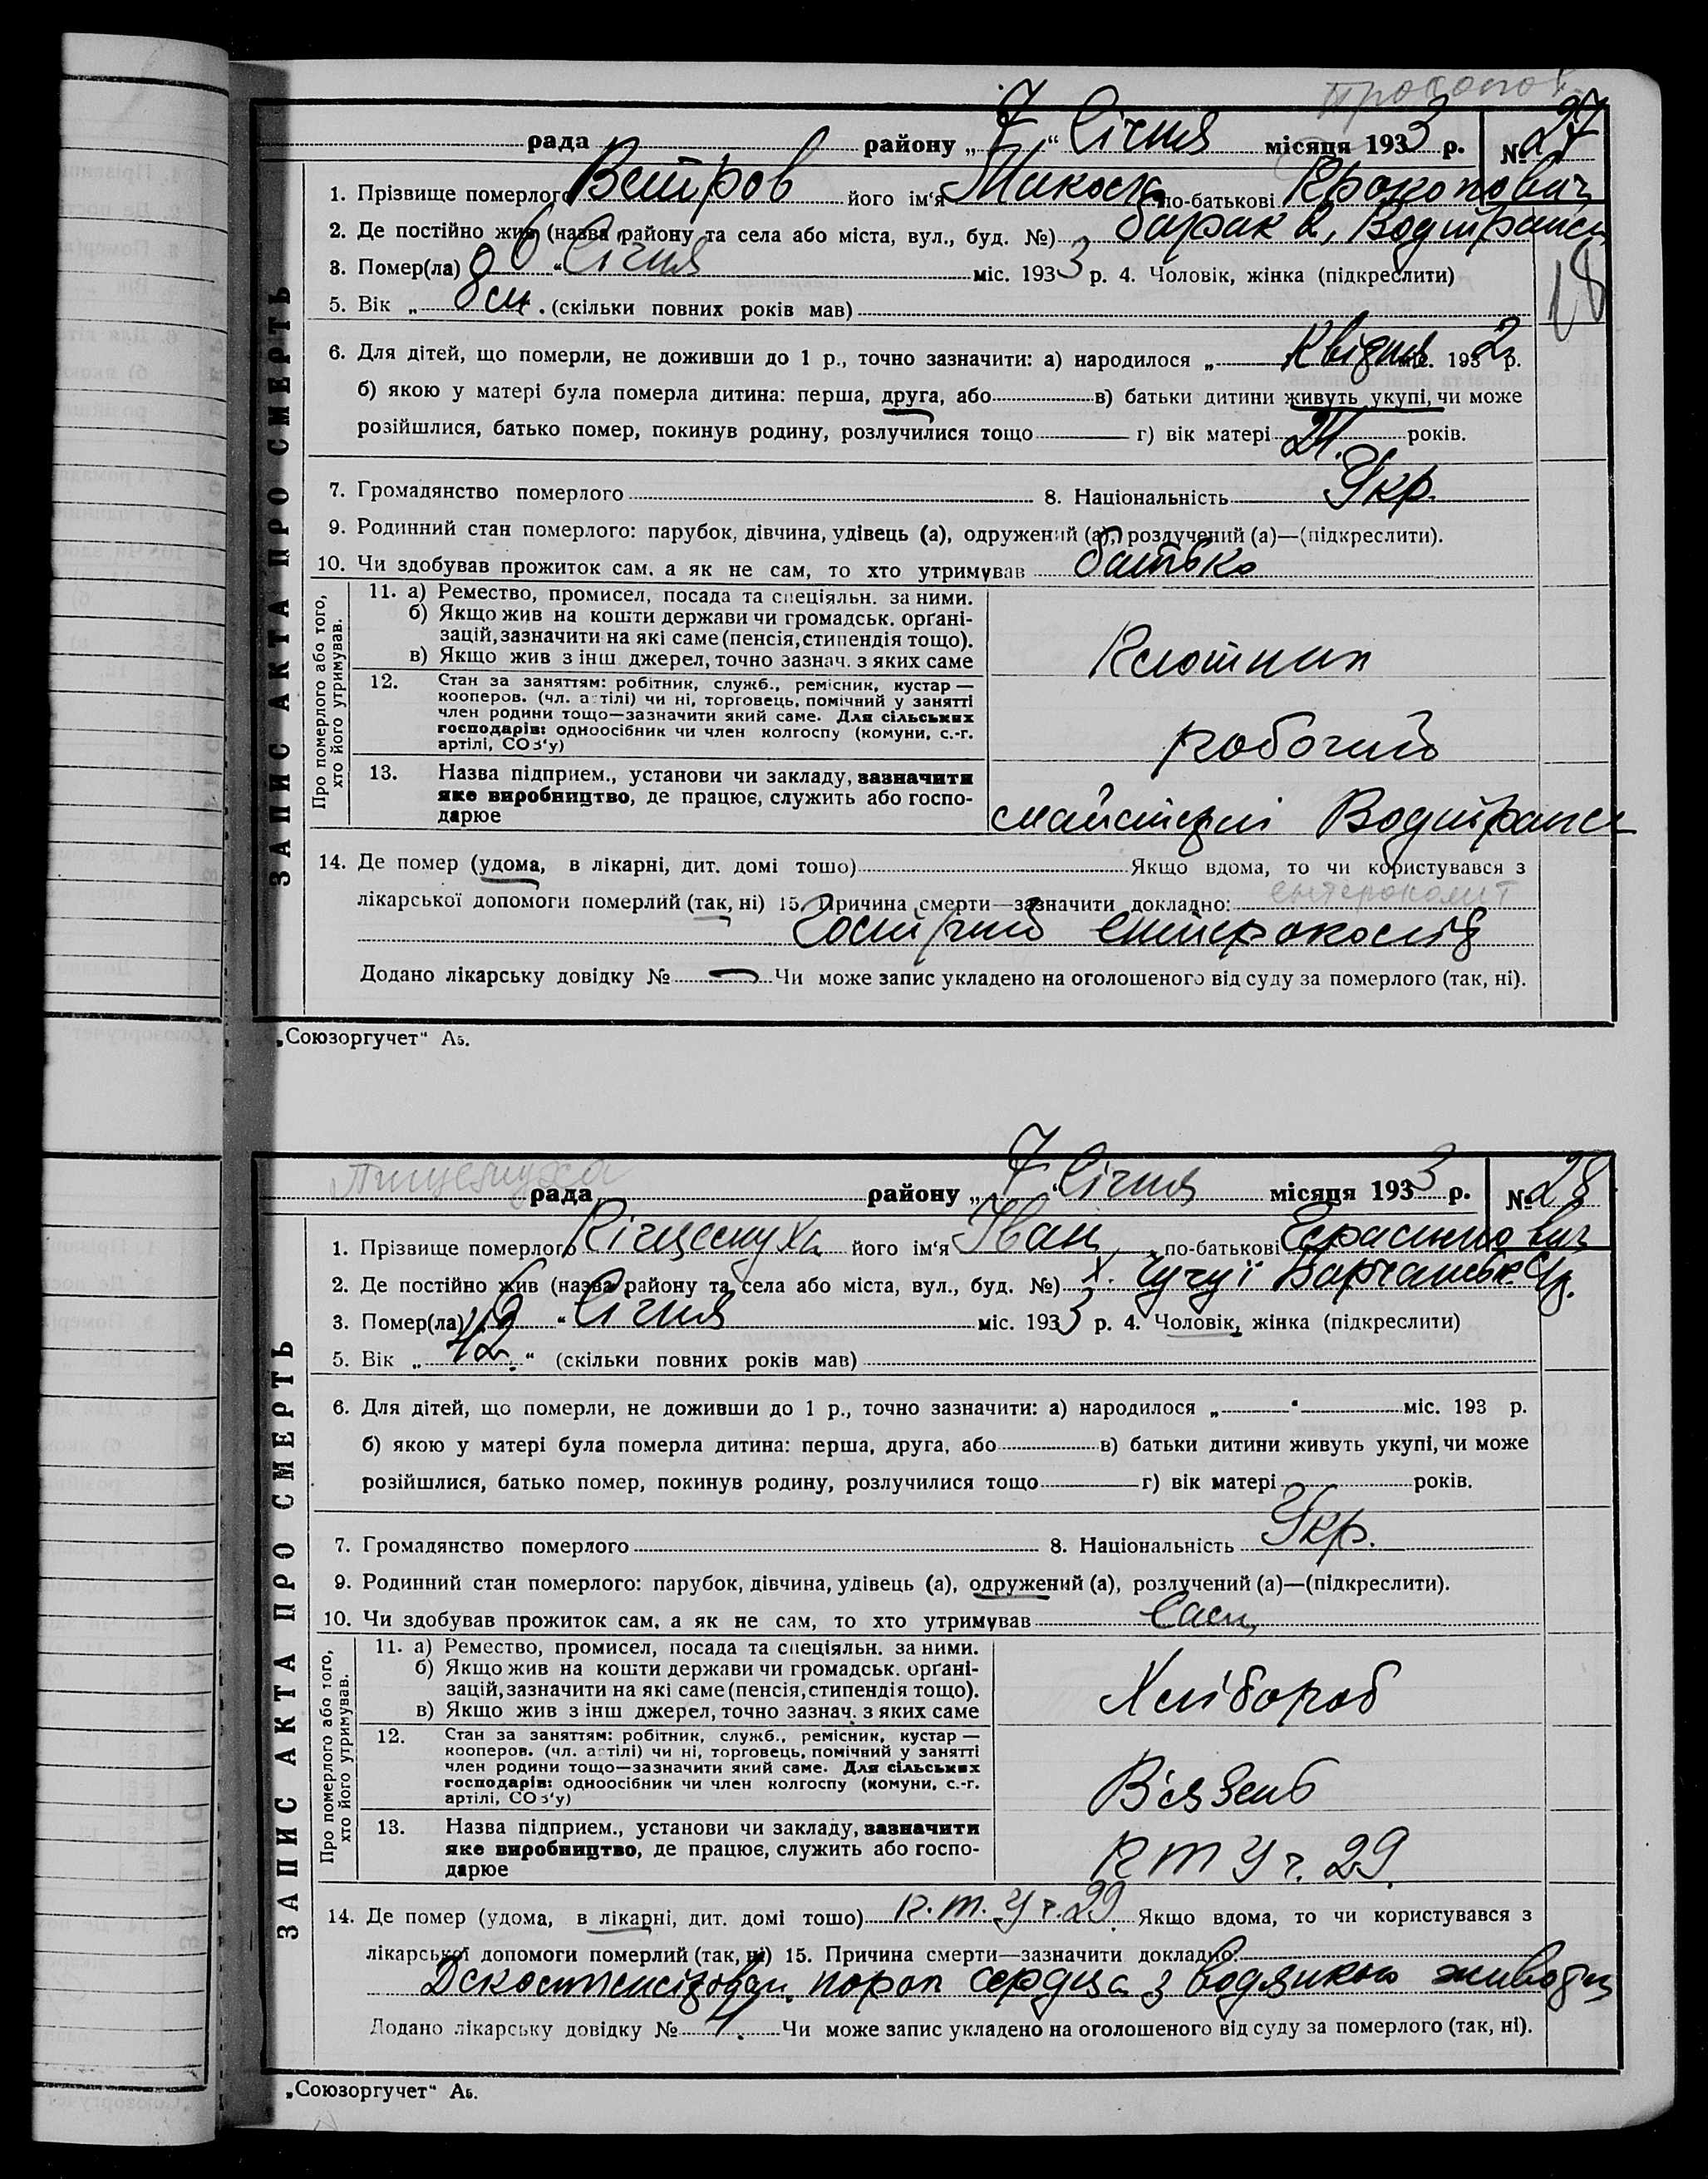 рада района „7“ Січня місяця 1933 р. № 27
1. Прізвище померлого Ветров його ім'я Микола по-батькові Прокопович
2. Де постійно жив (назва району та села або міста, вул., буд. №) барак 2, Водтранси
3. Помер(ла) „6“ Січня міс. 1933 р. 4. Чоловік, жінка (підкреслити)
18
5. Вік „8 м. (скільки повних років мав)
6. Для дітей, що померли, не доживши до 1 р., точно зазначити: а) народилося „ Квідня міс. 1932 р.
б) якою у матері була померла дитина: перша, друга, або в) батьки дитини живуть укупі, чи може
розійшлися, батько помер, покинув родину, розлучилися тощо г) вік матері 21. років.
7. Громадянство померлого 8. Національність Укр.
9. Родинний стан померлого: парубок, дівчина, удівець (а), одружений (а), розлучений (а)—(підкреслити).
10. Чи здобував прожиток сам, а як не сам, то хто утримував батько
ЗАПИС АКТА ПРО СМЕРТЬ
Про померлого або того, хто його утримував.
11. а) Ремество, промисел, посада та спеціяльн. за ними.
б) Якщо жив на кошти держави чи громадськ. орґані-
зацій, зазначити на які саме (пенсія, стипендія тощо).
в) Якщо жив з інш. джерел, точно зазнач. з яких саме
Плотник
12. Стан за заняттям: робітник, служб., ремісник, кустар —
кооперов. (чл. артілі) чи ні, торговець, помічний у занятті
член родини тощо—зазначити який саме. Для сільських
господарів: одноосібник чи член колгоспу (комуни, с.-г.
артілі, СОЗ'у)
робочий
13. Назва підприєм., установи чи закладу, зазначити
яке виробництво, де працює, служить або госпо-
дарює
майстерні Водтранси
14. Де помер (удома, в лікарні, дит. домі тошо) Якщо вдома, то чи користувався з
лікарської допомоги померлий (так, ні) 15. Причина смерти—зазначити докладно: ентероколит
Гострий ентероколід
Додано лікарську довідку № — Чи може запис укладено на оголошеного від суду за померлого (так, ні).
„Союзоргучет“ А5.
рада району „7“ Січня місяця 1933 р. № 28
1. Прізвище померлого його ім'я Іван по-батькові Герасимович
2. Де постійно жив (назва району та села або міста, вул., буд. №) х. Чучуї
3. Помер(ла) „ “ Січня міс. 1933 р. 4. Чоловік, жінка (підкреслити)
5. Вік „42.“ (скільки повних років мав)
6. Для дітей, що померли, не доживши до 1 р., точно зазначити: а) народилося „ “ міс. 193 р.
б) якою у матері була померла дитина: перша, друга, або в) батьки дитини живуть укупі, чи може
розійшлися, батько помер, покинув родину, розлучилися тощо г) вік матері років.
7. Громадянство померлого 8. Національність Укр.
9. Родинний стан померлого: парубок, дівчина, удівець (а), одружений (а), розлучений (а)—(підкреслити).
10. Чи здобував прожиток сам, а як не сам, то хто утримував Сам
ЗАПИС АКТА ПРО СМЕРТЬ
Про померлого або того, хто його утримував.
11. а) Ремество, промисел, посада та спеціяльн. за ними.
б) Якщо жив на кошти держави чи громадськ. орґані-
зацій, зазначити на які саме (пенсія, стипендія тощо).
в) Якщо жив з інш джерел, точно зазнач. з яких саме
Хлібороб
12. Стан за заняттям: робітник, служб., ремісник, кустар —
кооперов. (чл. артілі) чи ні, торговець, помічний у занятті
член родини тощо—зазначити який саме. Для сільських
господарів: одноосібник чи член колгоспу (комуни, с.-г.
артілі, СОЗ'у)
В'язень
13. Назва підприєм., установи чи закладу, зазначити
яке виробництво, де працює, служить або госпо-
дарюе
П Т У ч. 29.
14. Де помер (удома, в лікарні, дит. домі тошо) П.Т.У ч. 29. Якщо вдома, то чи користувався з
лікарської допомоги померлий (так, ні) 15. Причина смерти—зазначити докладно:
порок сердца з водянкою живота
Додано лікарську довідку № 4. Чи може запис укладено на оголошеного від суду за померлого (так, ні).
„Союзоргучет“ А5.